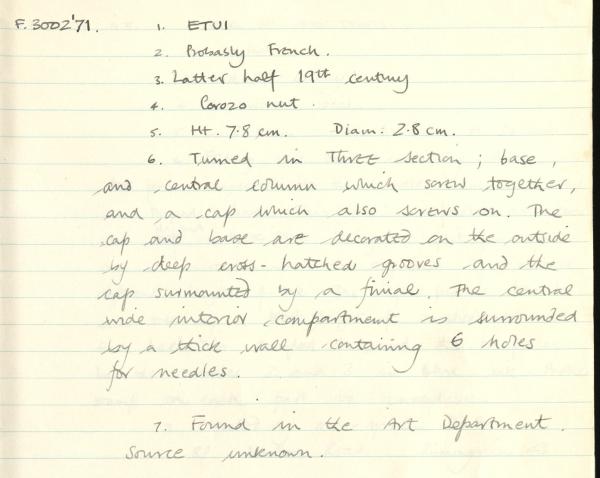 F.3002'71. 1. ETUI
2. Probably French.
3. Latter half 19th century
4. Corozo nut.
5. Ht. 7.8 cm. Diam. 2.8 cm.
6. Turned in Three section; base,
and central column which screw together,
and a cap which also screws on. The
cap and base are decorated on the outside
by deep cross-hatched grooves and the
cap surmounted by a finial. The central
wide interior compartment is surrounded
by a thick wall containing 6 holes
for needles.
7. Found in the Art Department.
Source unknown.